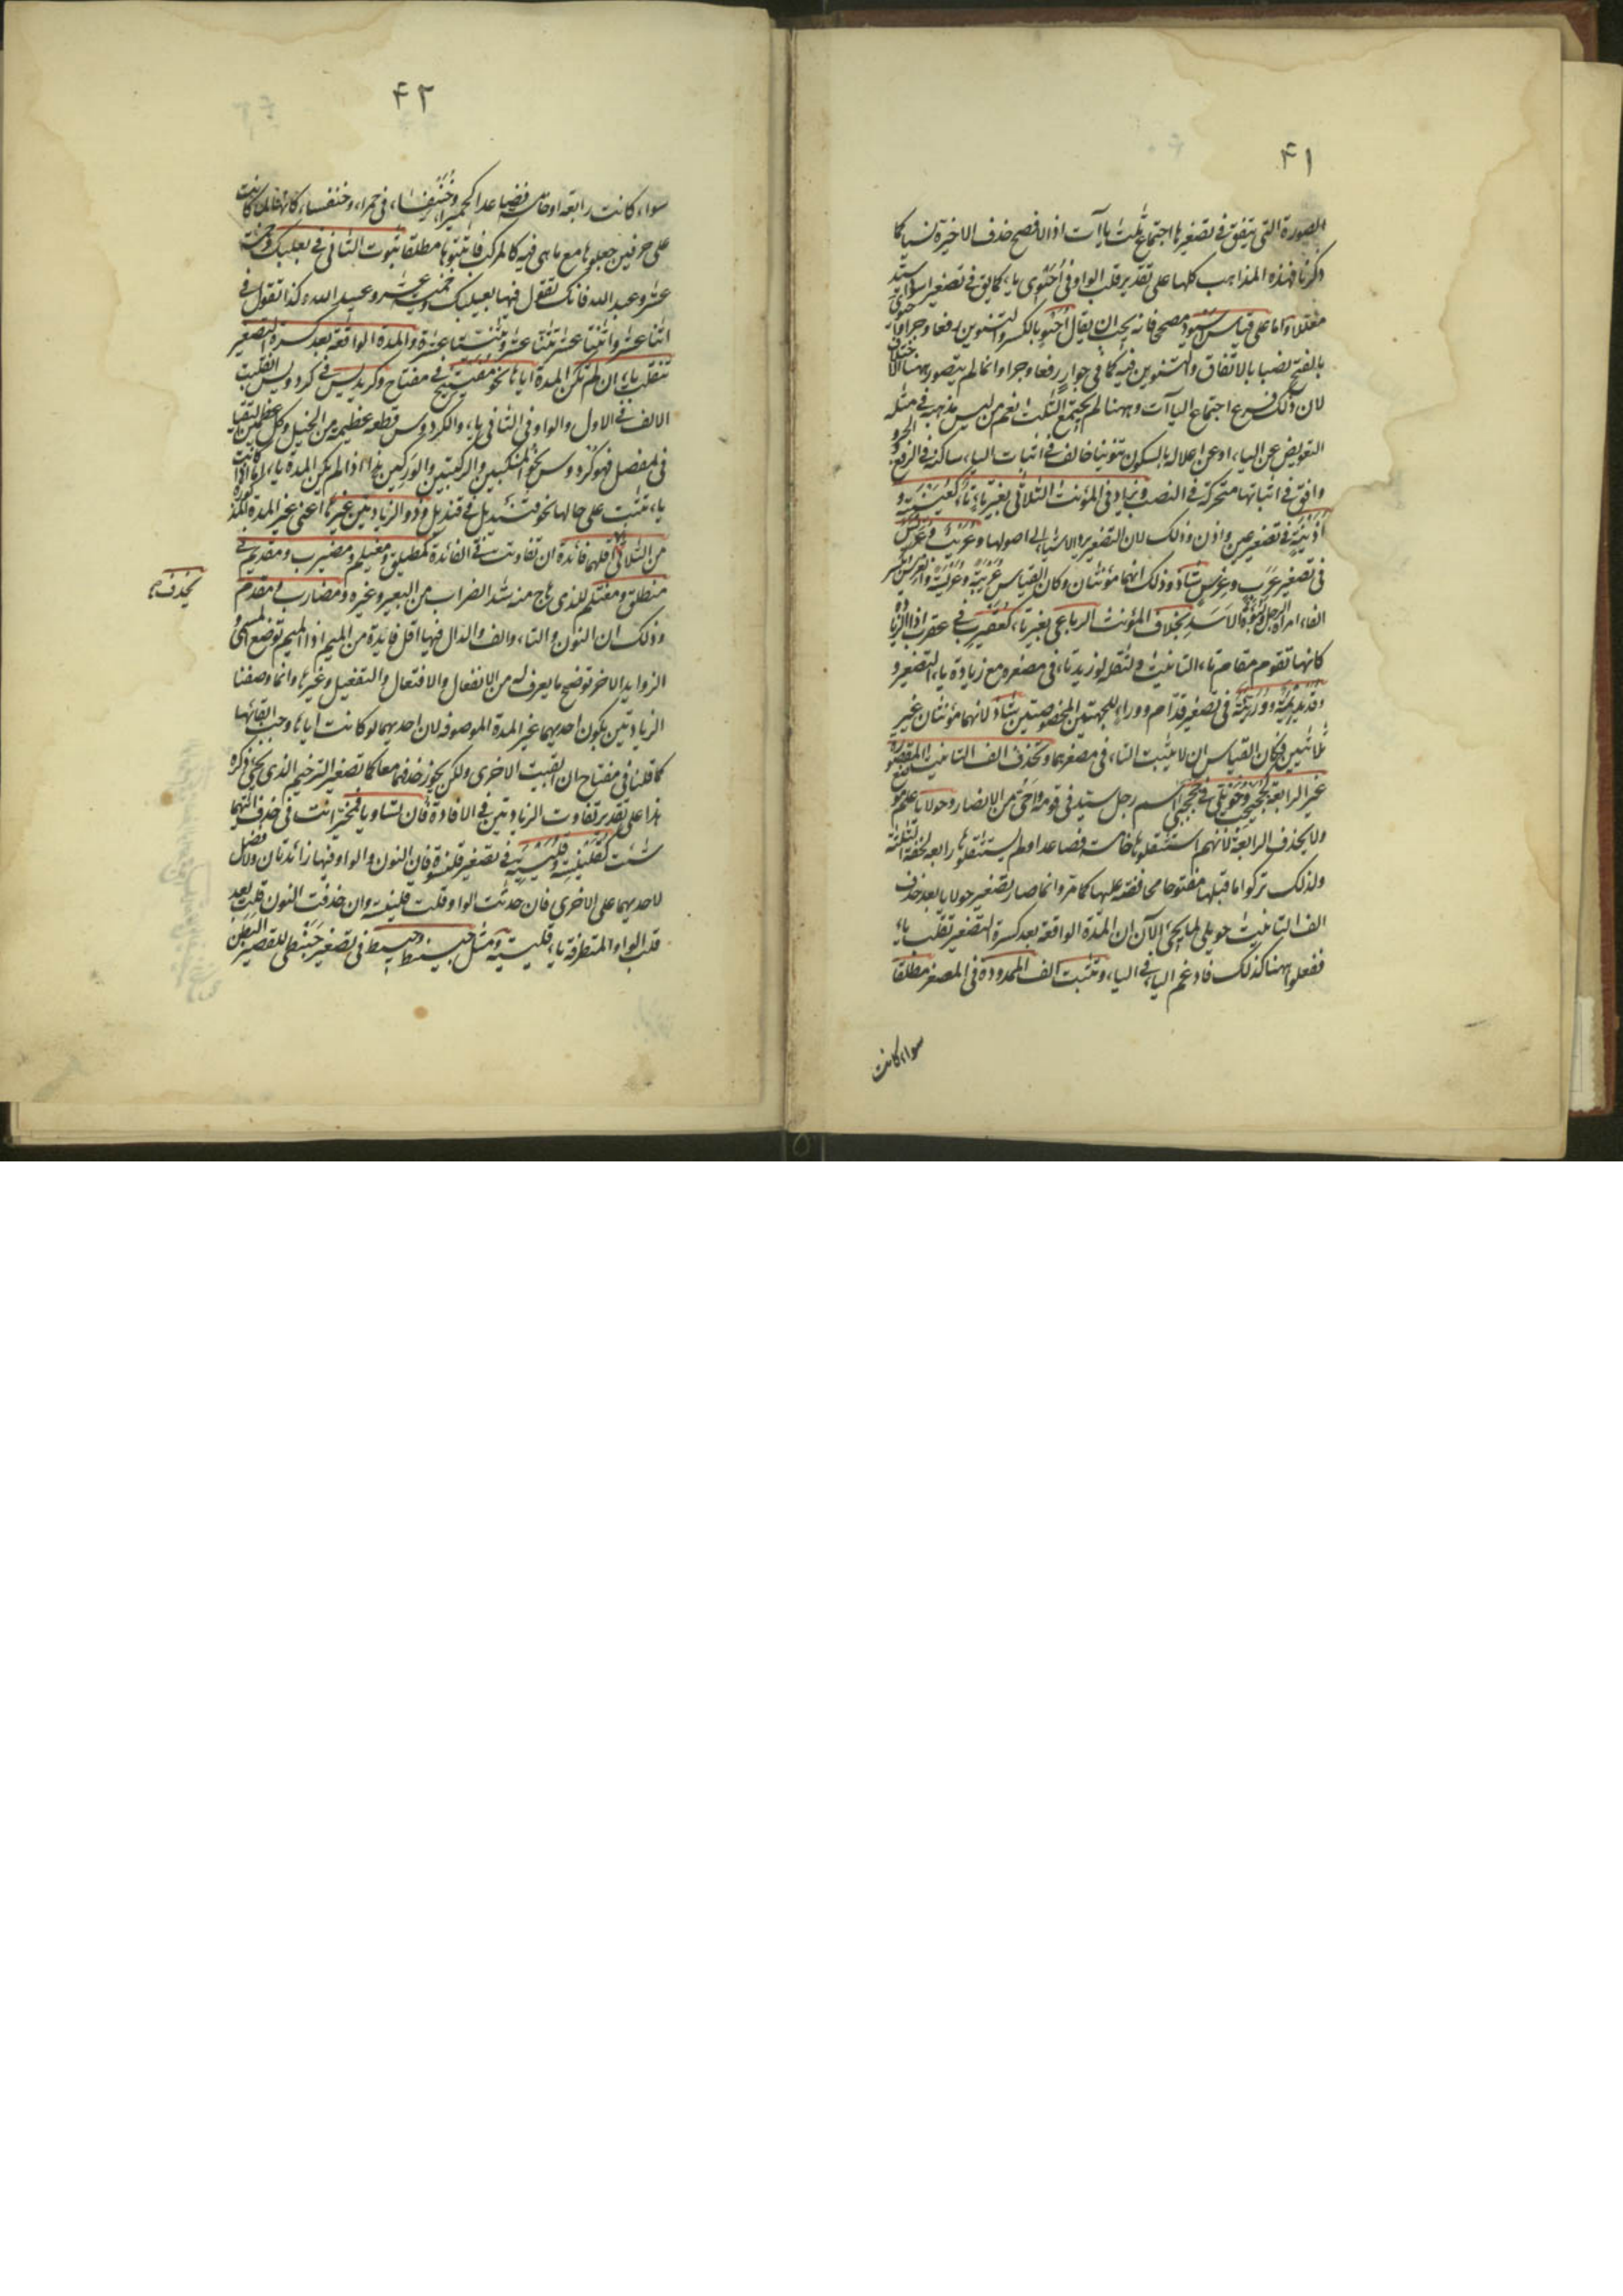 ۴۱
الصورة التى يتفق فى تصغيرها اجتماع ثلث يا آت اذ الافصح حذف الاخيرة نسيا كما
ذكرنا فهذه المذاهب كلها على تقدير قلب الواو فى احيوى ياء كما يق فى تصغير اسود اسيد
معللا واما على قياس اسيود مصححا فانه يجب ان يقال احيو بالكسر والتنوين رفعا وجرا
بالفتح نصبا بالاتفاق والتنوين فيه كما فى جوار رفعا وجرا وانما لم يتصور ههنا الاختلاف
لان ذلك فرع اجتماع اليا آت وههنا لم يجتمع الثلث نعم من ليس مذهبه فى مثله
التعويض عن الياء او عن اعلاله بالسكون تنوينا خالف فى اثبات الياء ساكنة فى الرفع والجر و
وافق فى اثباتها متحركة فى النصب ويزاد فى المؤنث الثلاثى بغير تاء تاء كعيينة و
اذينة فى تصغير عين واذن وذلك لان التصغير يرد الاشياء الى اصولها وعريب وعريس
فى تصغير عرب وعرس شاذ وذلك انهما مؤنثان وكان القياس عريبة وعريسة والعرس بكسر
الفاء امراة الرجل ولبوة الاسد بخلاف المؤنث الرباعى بغير تاء كعقيرب فى عقرب اذ الزيادة
كانها تقوم مقام تاء التانيث ولثقل لو زيد تاء فى مصغره مع زيادة ياء التصغير و
وقديديمة ووريئة فى تصغير قدام ووراء للجهتين المخصوصتين شاذ لانهما مؤنثان غير
ثلاثيين فكان القياس ان لا يثبت التاء فى مصغرهما وتحذف الف التانيث المقصورة
غير الرابعة كجحيجب وحويلى فى جحجبى اسم رجل سيد فى قومه وحى من الانصار وحولايا علم موضع
ولا يحذف الرابعة لانهم استثقلوها خامسة فصاعدا ولم يستثقلوها رابعة لخفة الثلثة
ولذلك تركوا ما قبلها مفتوحا محافظة عليها كما مر وانما صار تصغير حولايا بعد حذف
الف التانيث حويلى لما يجئ الآن ان المدة الواقعة بعد كسرة التصغير تقلب ياء
ففعلوا ههنا كذلك فادغم الياء فى الياء وتثبت الف الممدودة فى المصغر مطلقا
سواء كانت
۴۲
سواء كانت رابعة او خامسة فصاعدا كحميراء وخنيفساء فى حمراء وخنفساء كانها لما كانت
على حرفين جعلوها مع ما هى فيه كالمركب فاثبتوها مطلقا ثبوت الثانى فى بعلبك وخمسة
عشر وعبد الله فانك تقول فيها بعيلبك وخميسة عشر وعبيد الله وكذا تقول فى
اثنا عشر واثنتا عشر ثنيا عشر وثنيتا عشرة والمدة الواقعة بعد كسرة التصغير
تنقلب ياء ان لم تكن المدة اياها نحو مفيتيح فى مفتاح وكريديس فى كردوس انقلبت
الالف فى الاول والواو فى الثانى ياء والكردوس قطعة عظيمة من الخيل وكل عظمين التقيا
فى مفصل فهو كردوس نحو المنكبين والركبتين والوركين هذا اذا لم يكن المدة ياء اما اذا كانت
ياء تثبت على حالها نحو قنيديل فى قنديل وذو الزيادتين غيرها اعنى غير المدة المذكورة
من الثلاثى اقلهما فائدة ان تفاوتت فى الفائدة كمطيلق ومغيلم ومضيرب ومقيدم فى
يحذف
منطلق ومغتلم للذى هاج منه شد الضراب من البعير وغيره ومضارب ومقدم
وذلك ان النون والتاء والف والدال فيها اقل فايدة من الميم اذ الميم توضع لمسمى و
الزوايد الاخر توضح ما يعرف به من الانفعال والافتعال والتفعيل وغيرها وانما وصفنا
الزيادتين بكون احديهما غير المدة الموصوفة لان احديهما لو كانت اياها وجب ابقائها
كما قلنا فى مفتاح ان ابقيت الاخرى ولكن يجوز حذفهما معا كما تصغير الترخيم الذى يجئ ذكره
هذا على تقدير تفاوت الزيادتين فى الافادة فان تساويا فمخير انت فى حذف ايتهما
شئت كقلينسة وقليسية فى تصغير قلنسوة فان النون والواو فيها زائدتان ولا فضل
لاحديهما على الاخرى فان حذفت الواو قلت قلينسة وان حذفت النون قلت بعد
قلب الواو المتطرفة ياء قليسية ومثل حبينط وحبيط فى تصغير حبنطى للقصير البطن